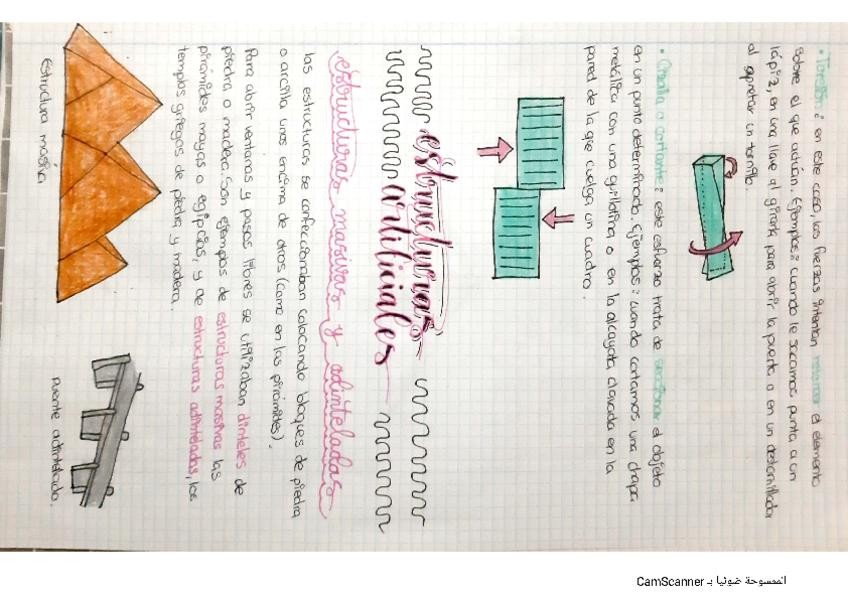 • Torsión: en este caso, las fuerzas intentan retorcer el elemento
sobre el que actúan. Ejemplos: cuando le sacamos punta a un
lápiz, en una llave al girarla para abrir la puerta o en un destornillador
al apretar un tornillo.
• Cizalla o cortante: este esfuerzo trata de seccionar el objeto
en un punto determinado. Ejemplos: cuando cortamos una chapa
metálica con una guillotina o en la alcayata clavada en la
pared de la que cuelga un cuadro.
estructuras
artificiales
estructuras masivas y adinteladas
las estructuras se confeccionaban colocando bloques de piedra
o arcilla unos encima de otros (como en las pirámides).
Para abrir ventanas y pasos libres se utilizaban dinteles de
piedra o madera. Son ejemplos de estructuras masivas las
pirámides mayas o egipcias, y de estructuras adinteladas, los
templos griegos de piedra y madera.
Estructura masiva
Puente adintelado.
الممسوحة ضوئيا بـ CamScanner